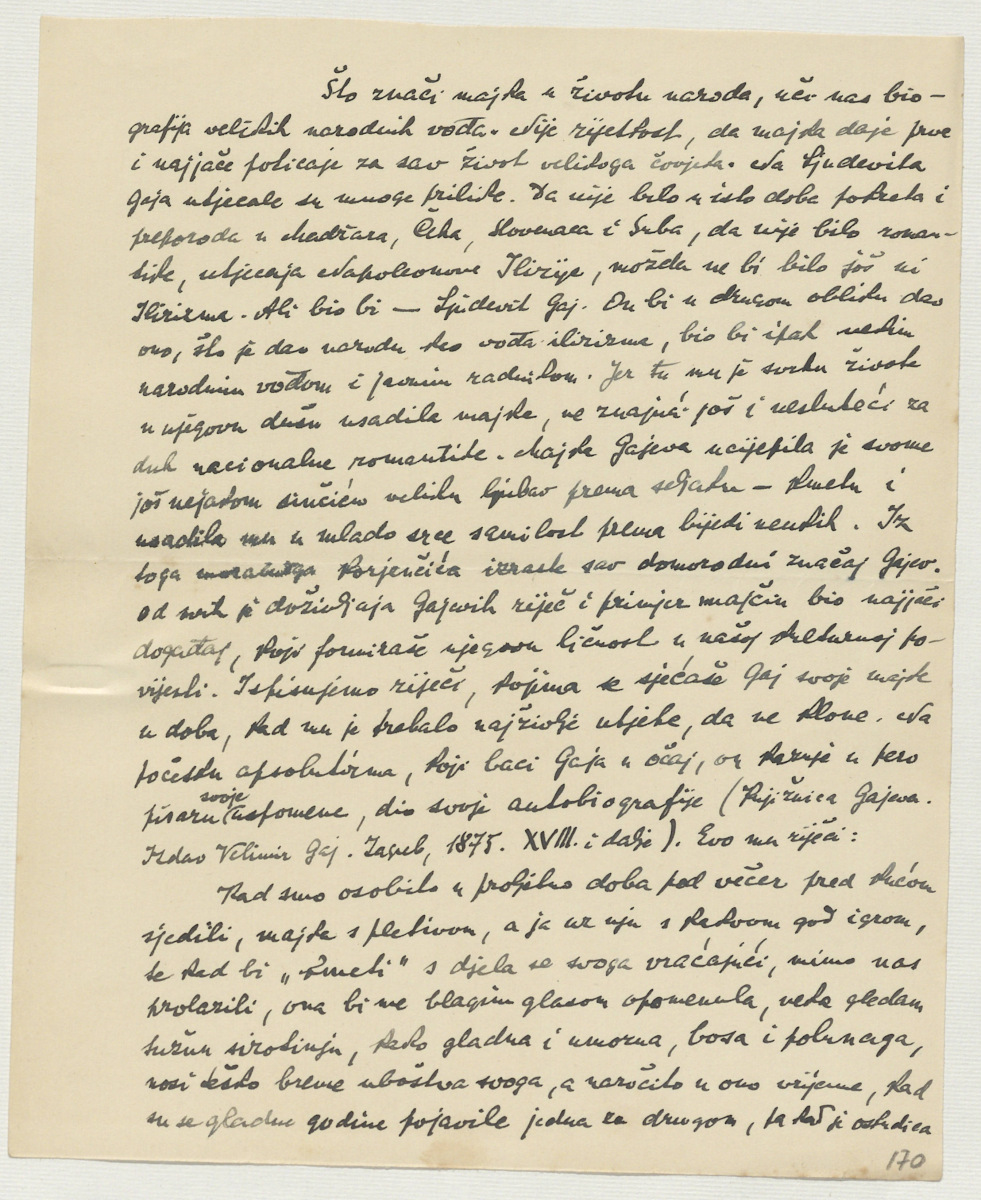 Što znači majka u životu naroda, uči nas bio-
grafija velikih narodnih vođa. Nije rijetkost, da majka daje prve
i najjače poticaje za sav život velikoga čovjeka. Na Ljudevita
Gaja utjecale su mnoge prilike. Da nije bilo u isto doba pokreta i
preporoda u Madžara, Čeha, Slovenaca i Srba, da nije bilo roman-
tike, utjecaja Napoleonove Ilirije, možda ne bi bilo još ni
Ilirizma. Ali bio bi — Ljudevit Gaj. On bi u drugom obliku dao
ono, što je dao narodu kao vođa ilirizma, bio bi ipak nekim
narodnim vođom i javnim radnikom. Jer tu mu je svrhu života
u njegovu dušu usadila majka, ne znajući još i nesluteći za
duh nacionalne romantike. Majka Gajeva ucijepila je svome
još nejakom sinčiću veliku ljubav prema seljaku – kmetu i
usadila mu u mlado srce samilost prema bijedi neukih. Iz
toga korjenčića izraste sav domorodni značaj Gajev.
Od svih je doživljaja Gajevih riječ i primjer majčin bio najjači
događaj, koji formiraše njegovu ličnost u našoj kulturnoj po-
vijesti. Ispisujemo riječi, kojima se sjećaše Gaj svoje majke
u doba, kad mu je trebalo najživlje utjehe, da ne klone. Na
početku apsolutizma, koji baci Gaja u očaj, on kazuje u pero
pisaru svoje uspomene, dio svoje autobiografije (Knjižnica Gajeva.
Izdao Velimir Gaj. Zagreb, 1875. XVIII. i dalje). Evo mu riječi:
Kad smo osobito u proljetno doba pod večer pred kućom
sjedili, majka s pletivom, a ja uz nju s kakvom god igrom,
te kad bi „kmeti“ s djela se svoga vraćajući, mimo nas
prolazili, ona bi me blagim glasom opomenula, neka gledam
tužnu sirotinju, kako gladna i umorna, bosa i polunaga,
nosi teško breme uboštva svoga, a naročito u ono vrijeme, kad
su se gladne godine pojavile jedna za drugom, pa kad je oskudica
170